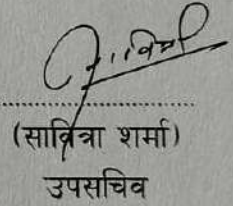 (सावित्रा शर्मा)
उपसचिव